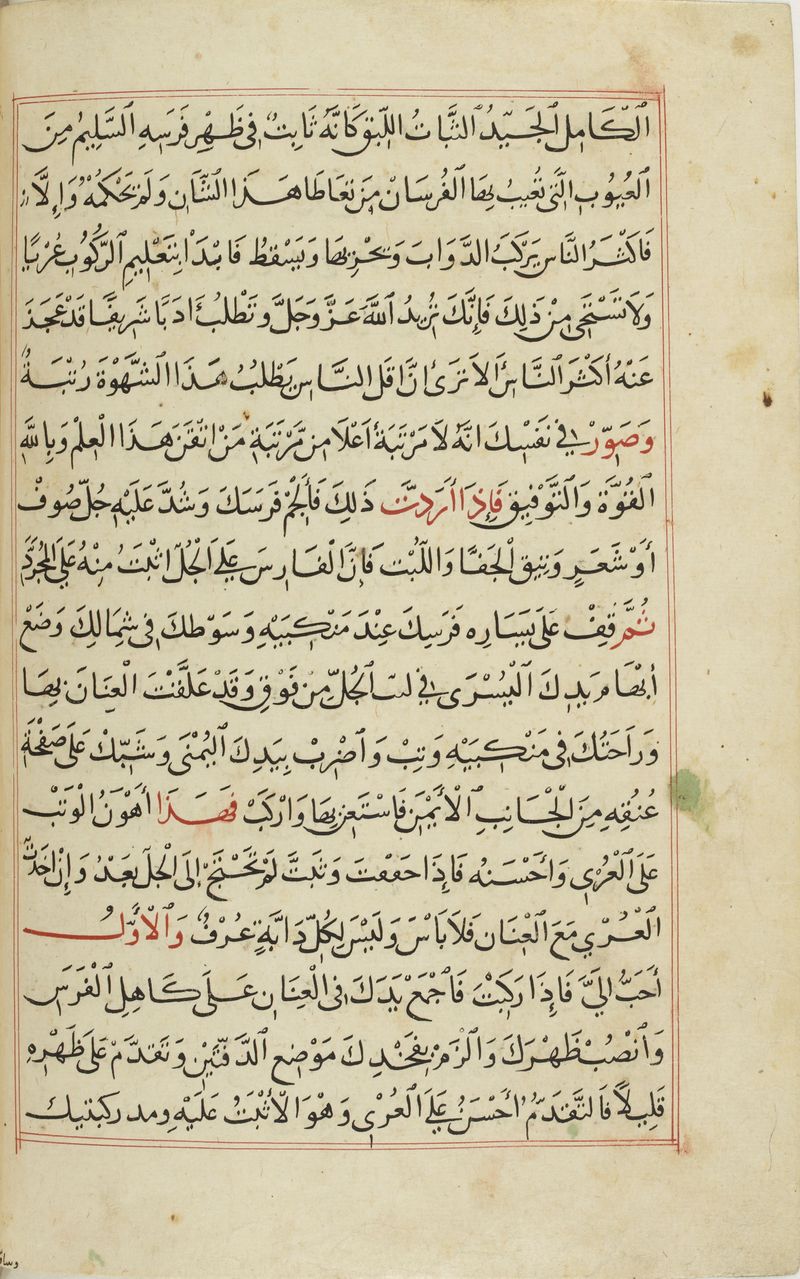 الكَامِل الجَيّدُ الثَّبَاتُ اللّبِق كَانَّهُ ثَابِتٌ فِي ظَهْرِ فَرَسِهِ السَّلِيمُ مِنَ
العُيُوبِ الَّتِي تُعِيبُ بِهَا الفُرسَانْ مَنْ تعَاطَا هَذا الشَّان وَلَمْ يَحْكمْهُ وَاِلَّا
فَاكثَرُ النَّاسِ يَركَبُ الدَّوَابَ وَيَسْقطُ فَابْدَأ بِتَعْلِيمِ الرّكُوبِ عُرْيًا
وَلَا تَسْتَحْيِ مِنْ ذلِكَ فَاِنَّكَ تُرِيدُ اللَّهَ عَزَّ وَجَلَّ وَتَطْلُبُ أدَبًا شَرِيفًا قَدْ عَجَزَ
عَنْهُ أكْثَرَ النَّاسِ ألَا تَرَى أنَّ اقَل النَّاسِ يَطْلبُ هَذَا الشَّهْوَة رُتبَةً
وَصَوّرْ فِي نَفسِكَ انَّهُ لَا مَرْتَبَةً أعْلَا مِن مَّرْتَبَةِ مَنْ اتقَنَ هَذَا العِلْمِ وَبِاللهِ
القُوَّة وَالتَّوْفِيق فَإذَا أرَدتَّ ذَلِكَ فَألجِمْ فَرَسَكَ وَشُدَّ عَلَيْهِ جُلّ صُوفْ
أوْ شَعَرٍ وَثِيق الحَفَا وَاللَّبَبْ فَاِنَّ الفَارِسَ عَلَى الجُلّ اثْبَتُ مِنْهُ عَلَى المُجَرَّدِ
ثُمَّ قِفْ عَلَى يَسَارِ فَرَسِكَ عِنْدَ مَنْكِبَيْهِ وَسَوْطكَ فِي شِمَالِكَ وَضَعْ
أبْهَام يَدِكَ اليُسْرَى فِي لبَب الجُلِّ مِنْ فَوْقِ وَقَدْ عَلَّقْتَ العِنَانَ بِهَا
وَرَاحَتُكَ فِي مَنْكِبَيْهِ وَثِبْ وَاضْرِبْ بِيَدِكَ اليُمْنَى وَشَبّكْ عَلَى صَفْحَةِ
عُنُقِهِ مِنَ الجَانِبِ الأيْمَنِ فَاسْتَعِن بِهَا وَارْكَبْ فَهَذَا أهْوَنُ الوَثْبِ
عَلَى العُرْيِ وَاحْسَنُه فَإذَا خَفَفتَ وَثَبَتَّ لَمْ تَحْتَجْ إلَى الجُلّ بَعْدُ وَإنْ اخَذتَّ
العُرْيِ مَعَ العِنَان فَلَا بَاسَ وَلَيْسَ لِكُلّ دَابَّةٍ عُرْفٌ وَالأوَّلُ
أحَبُّ إلَيَّ فَاِذَا رَكِبْتَ فَاجْمَعْ يَدَكَ فِي العِنَانِ عَلَى كَاهِلِ الفَرَسِ
وَانْصُبْ ظَهْرَكَ وَالزَمْ بِفَخْذِكَ مَوْضِعِ الدَّفتَيْنِ وَتَقدَّمْ عَلَى ظَهْرِهِ
قَلِيلًا فَالتَّقدّمُ أحْسَنُ عَلَى العُرْيِ وَهُوَ الأثْبَتُ عَلَيْهِ ومد ركبتيك
وساقيك